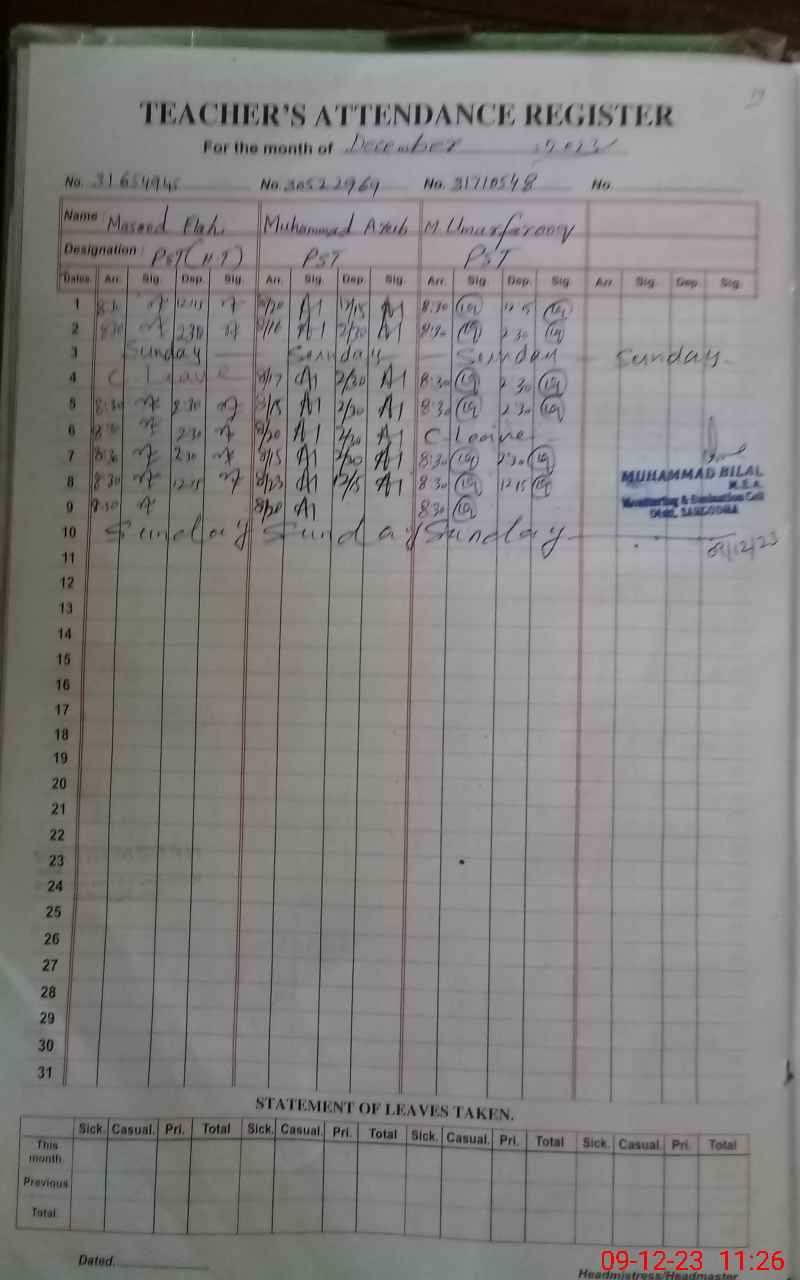 19
TEACHER'S ATTENDANCE REGISTER
For the month of December 2023
No. 31654945 No. 30522969 No. 31710548 No.
Name : Masood Elahi Muhammad Ayub M. Umar farooq
Designation : PST (H.T) PST PST
Dates Arr. Sig. Dep. Sig. Arr. Sig. Dep. Sig. Arr. Sig. Dep. Sig. Arr. Sig. Dep Sig.
1 8:30 12:15 8/20 A1 12/15 A1 8:30 12 15
2 8:30 2:30 8/16 A1 2/30 A1 8:30 2 30
3 Sunday Sunday Sunday Sunday
4 C Leave 8/17 A1 2/30 A1 8:30 2 30
5 8:30 2:30 8/15 A1 2/30 A1 8:30 2:30
6 8:30 2:30 8/20 A1 2/30 A1 C Leave
7 8:30 2:30 8/15 A1 2/30 A1 8:30 2:30
8 8:30 12:15 8/23 A1 12/15 A1 8:30 12 15
9 8:30 8/30 A1 8:30
10 Sunday Sunday Sunday
MUHAMMAD BILAL
M.E.A.
Monitoring & Evaluation Cell
Distt. SARGODHA
09/12/23
11
12
13
14
15
16
17
18
19
20
21
22
23
24
25
26
27
28
29
30
31
STATEMENT OF LEAVES TAKEN.
Sick. Casual. Pri. Total Sick. Casual. Pri. Total Sick. Casual. Pri. Total Sick. Casual. Pri. Total
This month.
Previous
Total.
Dated.
Headmistress/Headmaster
09-12-23 11:26